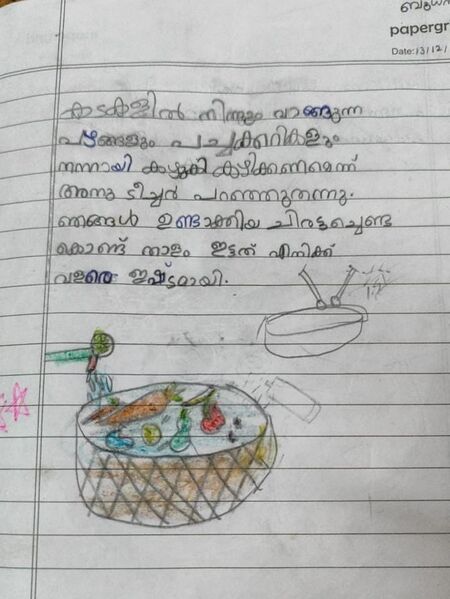 ബുധൻ
papergr
Date: 13/12/
കടകളിൽ നിന്നും വാങ്ങുന്ന
പഴങ്ങളും പച്ചക്കറികളും
നന്നായി കഴുകി കഴിക്കണമെന്ന്
അനു ടീച്ചർ പറഞ്ഞുതന്നു.
ഞങ്ങൾ ഉണ്ടാക്കിയ ചിരട്ടച്ചെണ്ട
കൊണ്ട് താളം ഇട്ടത് എനിക്ക്
വളരെ ഇഷ്ടമായി.